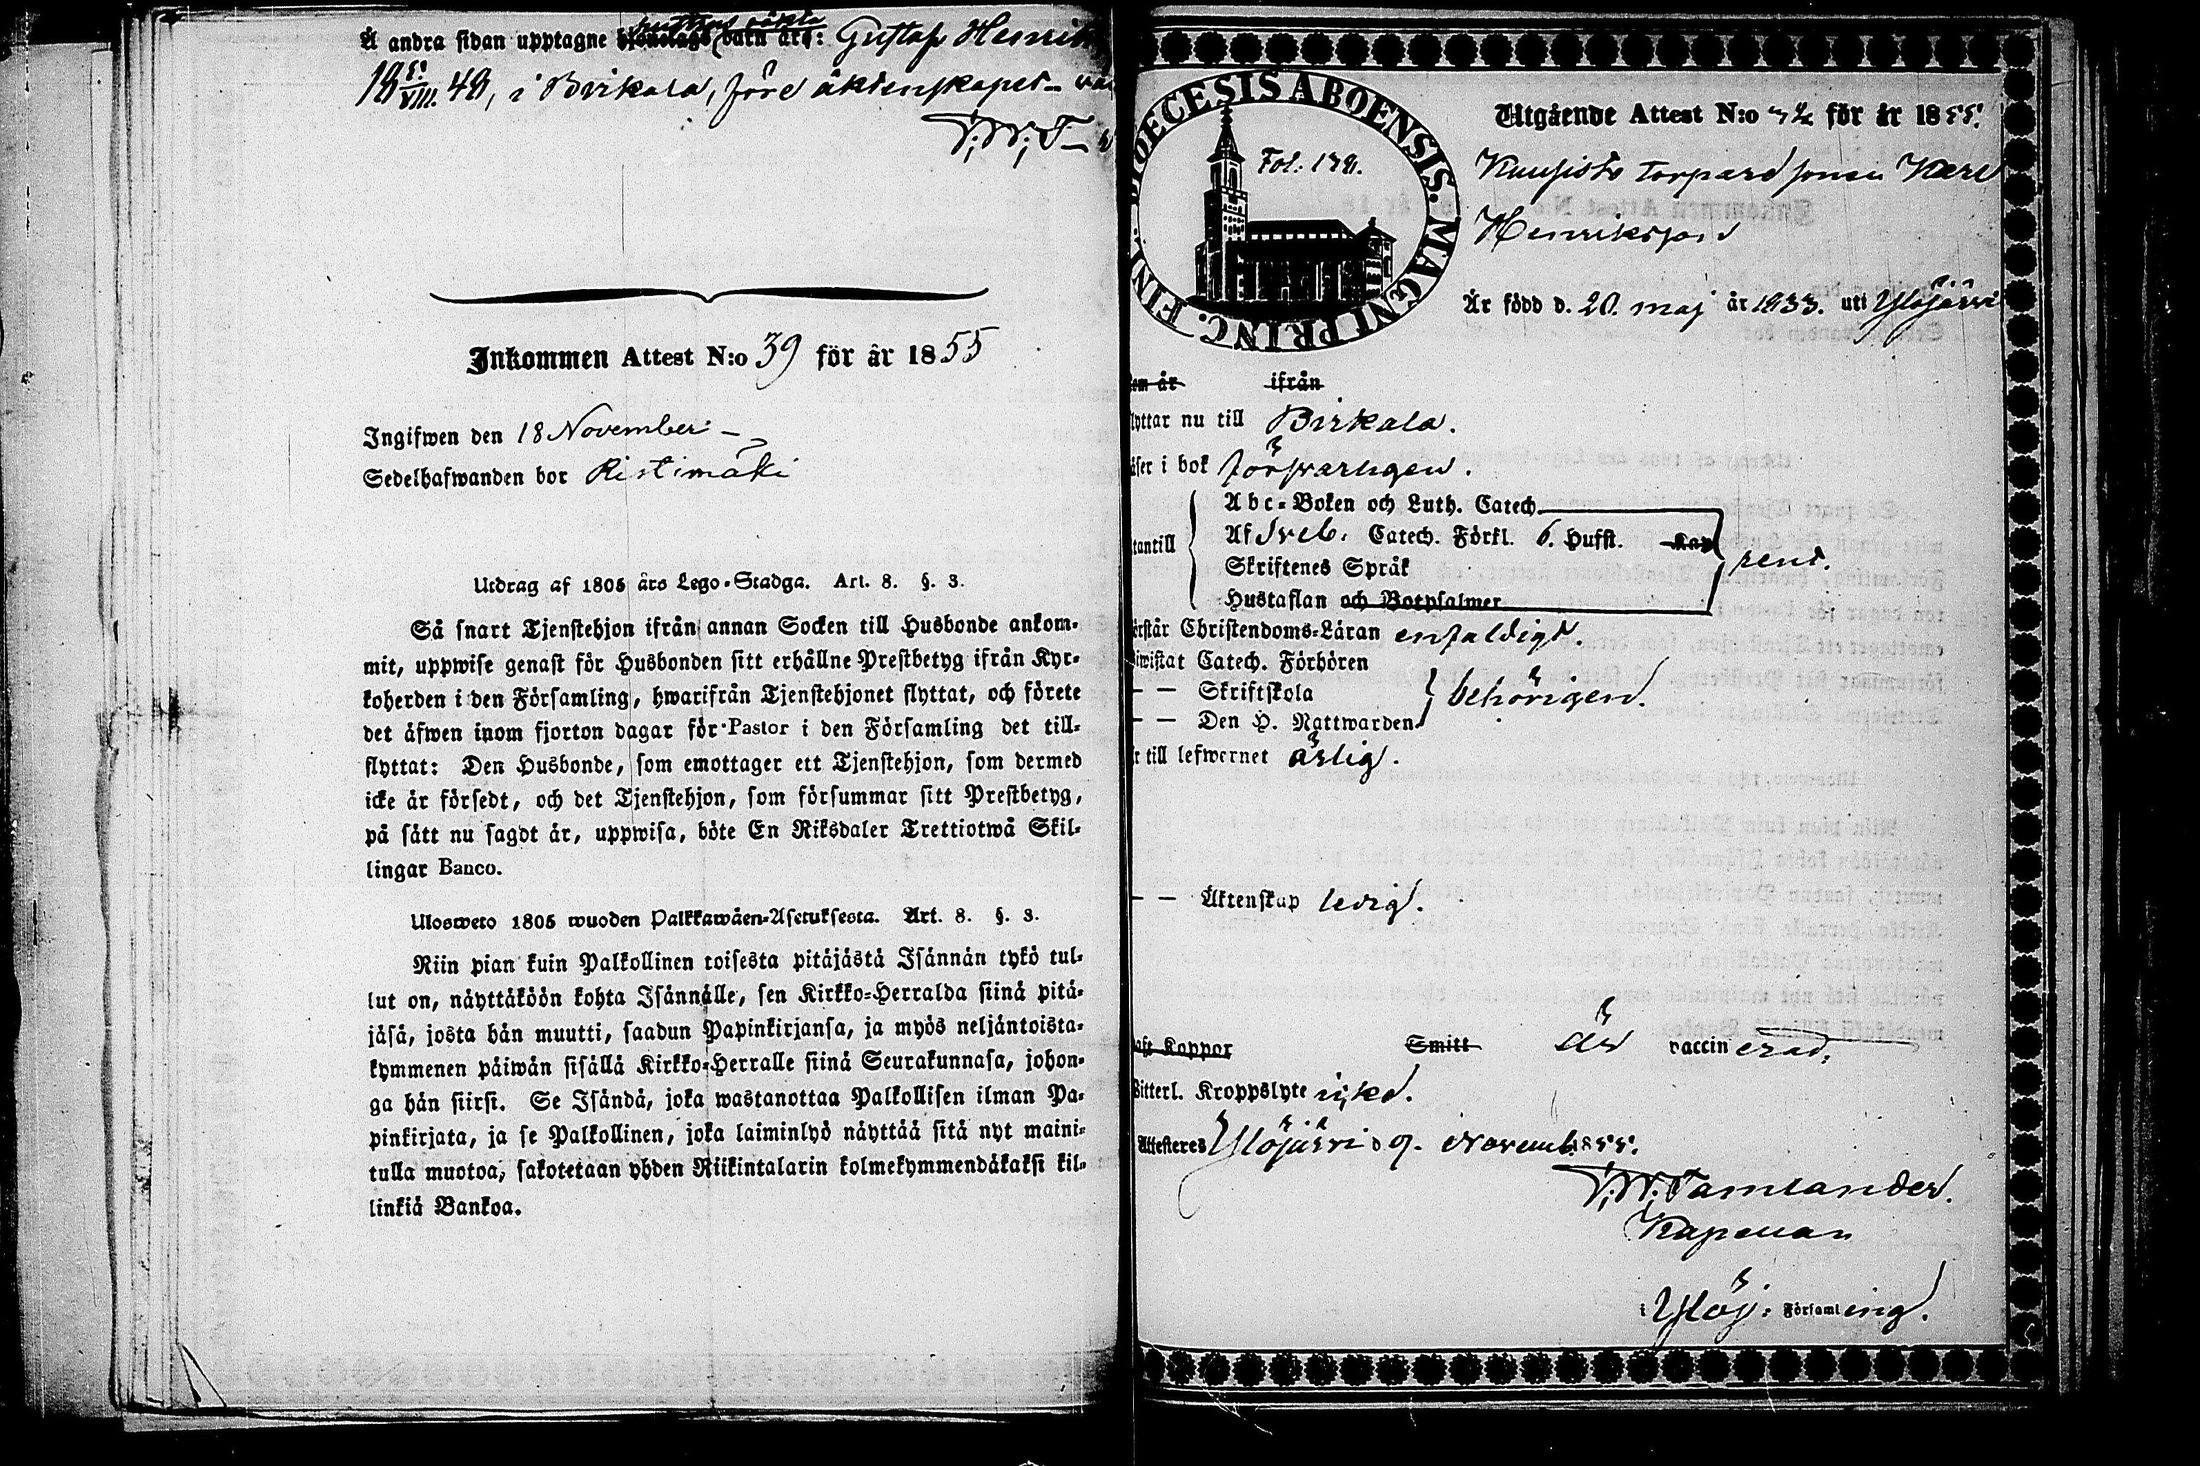 Å andra sidan upptagne barn äro: Gustaf Henrik
VIII. 48, i Birkala, före äktenskapet
Inkommen Attest N:o 39 för år 1855
Ingifwen den 18 November
Sedelhafwanden bor Ristimäki
Utdrag af 1805 års Lego-Stadga. Art. 8. §. 3.
Så snart Tjenstehjon ifrån annan Socken till Husbonde ankom-
mit, uppwise genast för Husbonden sitt erhållne Prestbetyg ifrån Kyr-
koherden i den Församling, hwarifrån Tjenstehjonet flyttat, och förete
det äfwen inom fjorton dagar för Pastor i den Församling det till-
flyttat: Den Husbonde, som emottager ett Tjenstehjon, som dermed
icke är försedt, och det Tjenstehjon, som försummar sitt Prestbetyg,
på sätt nu sagdt är, uppwisa, böte En Riksdaler Trettiotwå Skil-
lingar Banco.
Ulosweto 1805 wuoden Palkkawäen-Asetuksesta. Art. 8. §. 3.
Niin pian kuin Palkollinen toisesta pitäjästä Isännän tykö tul-
lut on, näyttäköön kohta Isännälle, sen Kirkko-Herralda siinä pitä-
jäsä, josta hän muutti, saadun Papinkirjansa, ja myös neljäntoista-
kymmenen päiwän sisällä Kirkko-Herralle siinä Seurakunnasa, johon-
ga hän siirsi. Se Isändä, joka wastanottaa Palkollisen ilman Pa-
pinkirjata, ja se Palkollinen, joka laiminlyö näyttää sitä nyt maini-
tulla muotoa, sakotetaan yhden Riikintalarin kolmekymmendäkaksi kil-
linkiä Bankoa.
DIOECESIS ABOENSIS. MAGNI PRINC. FINL.
Fol: 178.
Utgående Attest N:o för år 1855.
Kuusisto torpare sonen Karl
Henriksson
Är född d. 20. maj år 1833. uti Ylöjärvi
som är ifrån
flyttar nu till Birkala.
läser i bok försvarligen.
utantill
Abc-Boken och Luth. Catech.
Af Sveb. Catech. Förkl. 6. Hufst. Kap
Skriftenes Språk
Hustaflan och Botpsalmer
rent.
förstår Christendoms-Läran enfaldigt.
biwistat Catech. Förhören
— — Skriftskola
— — Den H. Nattwarden
behörigen.
är till lefwernet ärlig.
— — Äktenskap ledig.
haft Koppor Smitt är vaccinerad,
Witterl. Kroppslyte icke.
Attesteres Ylöjärvi d 9. Novemb. 1855.
Tamlander.
Kapellan
i Ylöj: Församling.